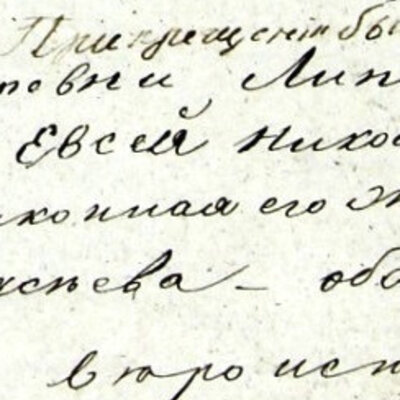 При крещенiи бы
ревни Лип
Евсей Никол
конная его Ж
ева - обо
вероис